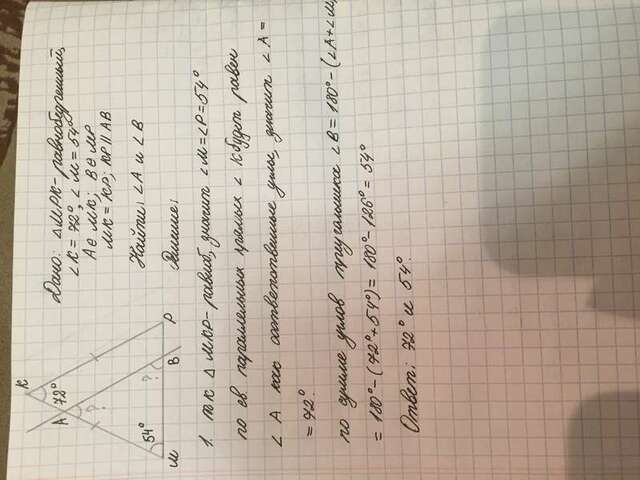 K
A 72°
?
54° ?
M B P
Дано: △ МРК - равнобедренный,
∠K = 72°, ∠M = 54°
A ∈ MK; B ∈ MP
MK = KP; KP || AB
Найти: ∠A и ∠B
Решение:
1. т к △ МКР - равноб, значит ∠M = ∠P = 54°
по св. параллельных прямых ∠ K будет равен
∠ A как соответственные углы, значит ∠A =
= 72°.
по сумме углов треугольника ∠B = 180° - (∠A + ∠M)
= 180° - (72° + 54°) = 180° - 126° = 54°
Ответ: 72° и 54°.